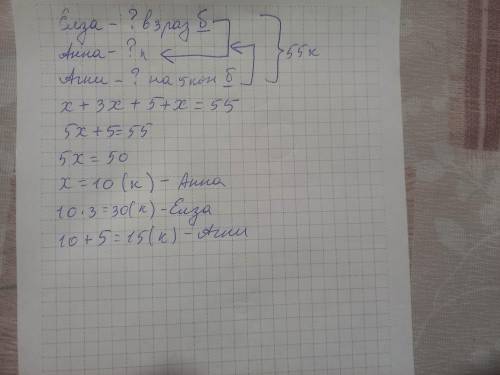 Елза - ? в 3 раз б
Анна - ? к
Агни - ? на 5 кон б
55к
x + 3x + 5 + x = 55
5x + 5 = 55
5x = 50
x = 10 (к) - Анна
10 · 3 = 30 (к) - Елза
10 + 5 = 15 (к) - Агни